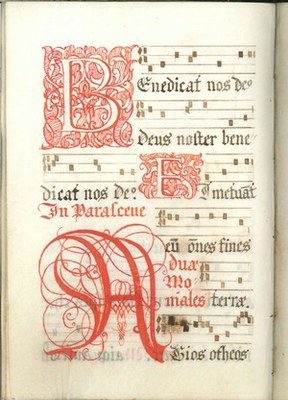 Benedicat nos de⁹
deus noster bene
dicat nos de⁹. Et metuāt
In Parascene
eū oēs fines
duæ
Mo
niales terræ.
Agios otheos